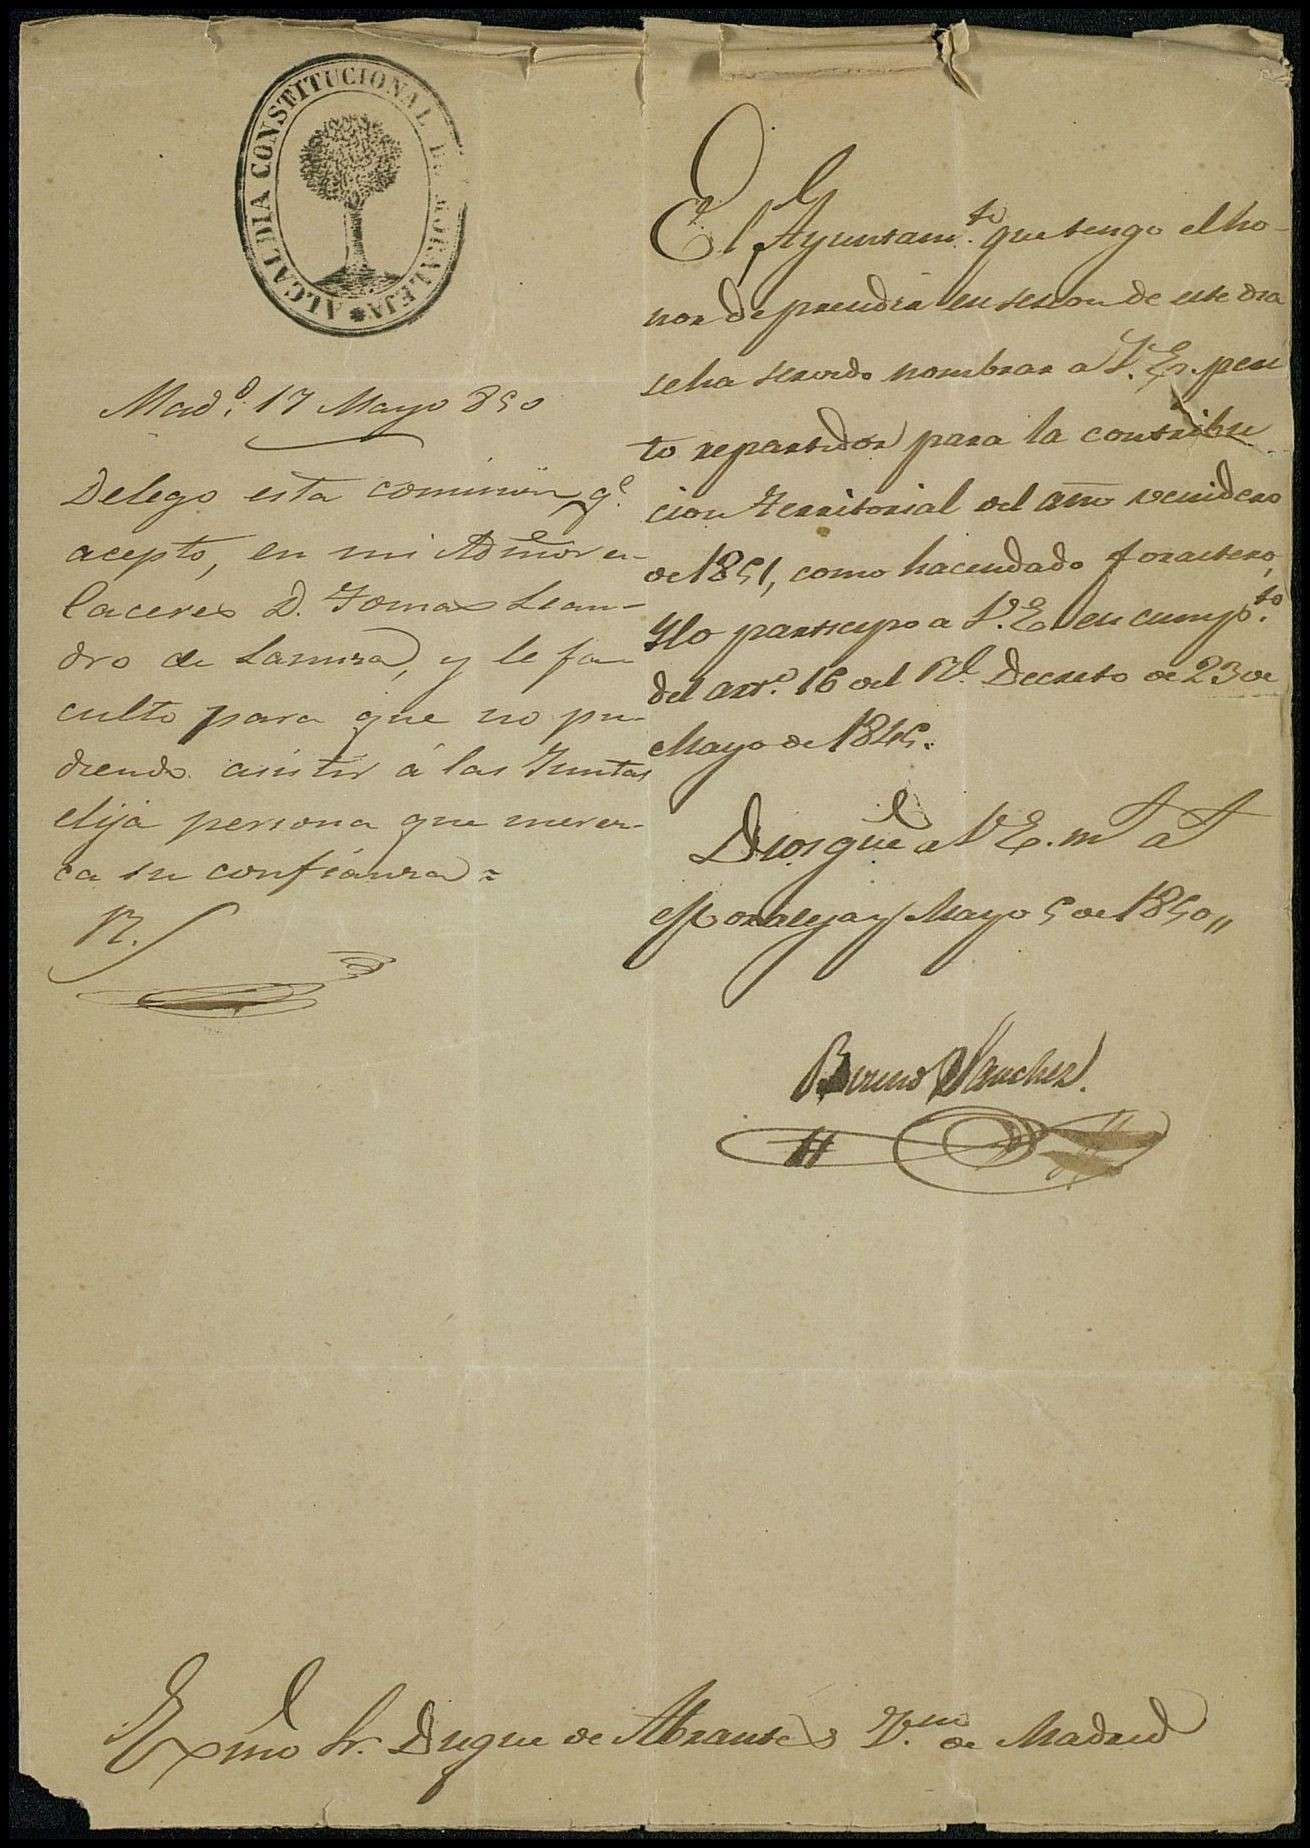 ALCALDIA CONSTITUCIONAL DE MORALEJA
Mad.d 17 Mayo 850
Delego esta comision q.e
acepto, en mi Admor en
Caceres D. Tomas Lean-
dro de Lamira, y le fa-
culto para que no pu-
diendo asistir á las Juntas
elija persona que merez-
ca su confianza =
R.
El Ayuntam.to que tengo el ho-
nor de precidir en sesion de este dia
se ha servido nombrar a V.E. peri
to repartidor para la contribu
cion Territorial del año venidero
de 1851, como hacendado forastero,
Y lo participo a V.E. en cump.to
del art.o 16 del R.l Decreto de 23 de
Mayo de 1845.
Dios gue a V.E. m.s a.s
Moraleja y Mayo 5 de 1850,,
Bruno Sanchez
Exmo Sr. Duque de Abrantes V.no de Madrid